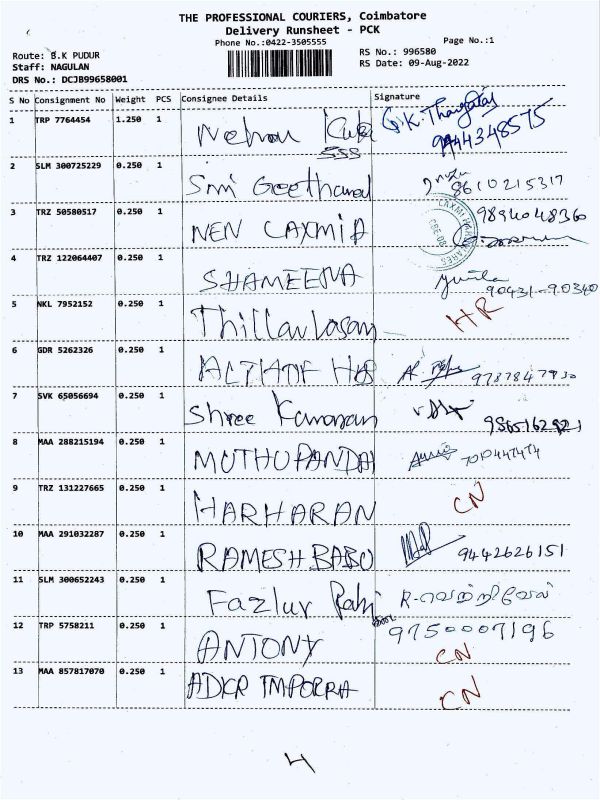 THE PROFESSIONAL COURIERS, Coimbatore
Delivery Runsheet - PCK
Phone No.:0422-3505555
Page No.:1
Route: B.K PUDUR
Staff: NAGULAN
DRS No.: DCJB99658001
RS No.: 996580
RS Date: 09-Aug-2022
S No Consignment No Weight PCS Consignee Details Signature
1 TRP 7764454 1.250 1 Nehru G.K. Thangaraj
555 9444348575
2 SLM 300725229 0.250 1 Smi 8610215317
3 TRZ 50580517 0.250 1 NEN LAXMIA 9894048360
4 TRZ 122064407 0.250 1 SHAMEENA 90431-90340
5 NKL 7952152 0.250 1 HR
6 GDR 5262326 0.250 1 9787847930
7 SVK 65056694 0.250 1 Shree
8 MAA 288215194 0.250 1 MUTHUPANDAI
9 TRZ 131227665 0.250 1 HARHARAN CN
10 MAA 291032287 0.250 1 RAMESH BABU 9442626151
11 SLM 300652243 0.250 1 Fazlur R-வெற்றிவேல்
12 TRP 5758211 0.250 1 ANTONY 9750007196
CN
13 MAA 857817070 0.250 1 CN
4